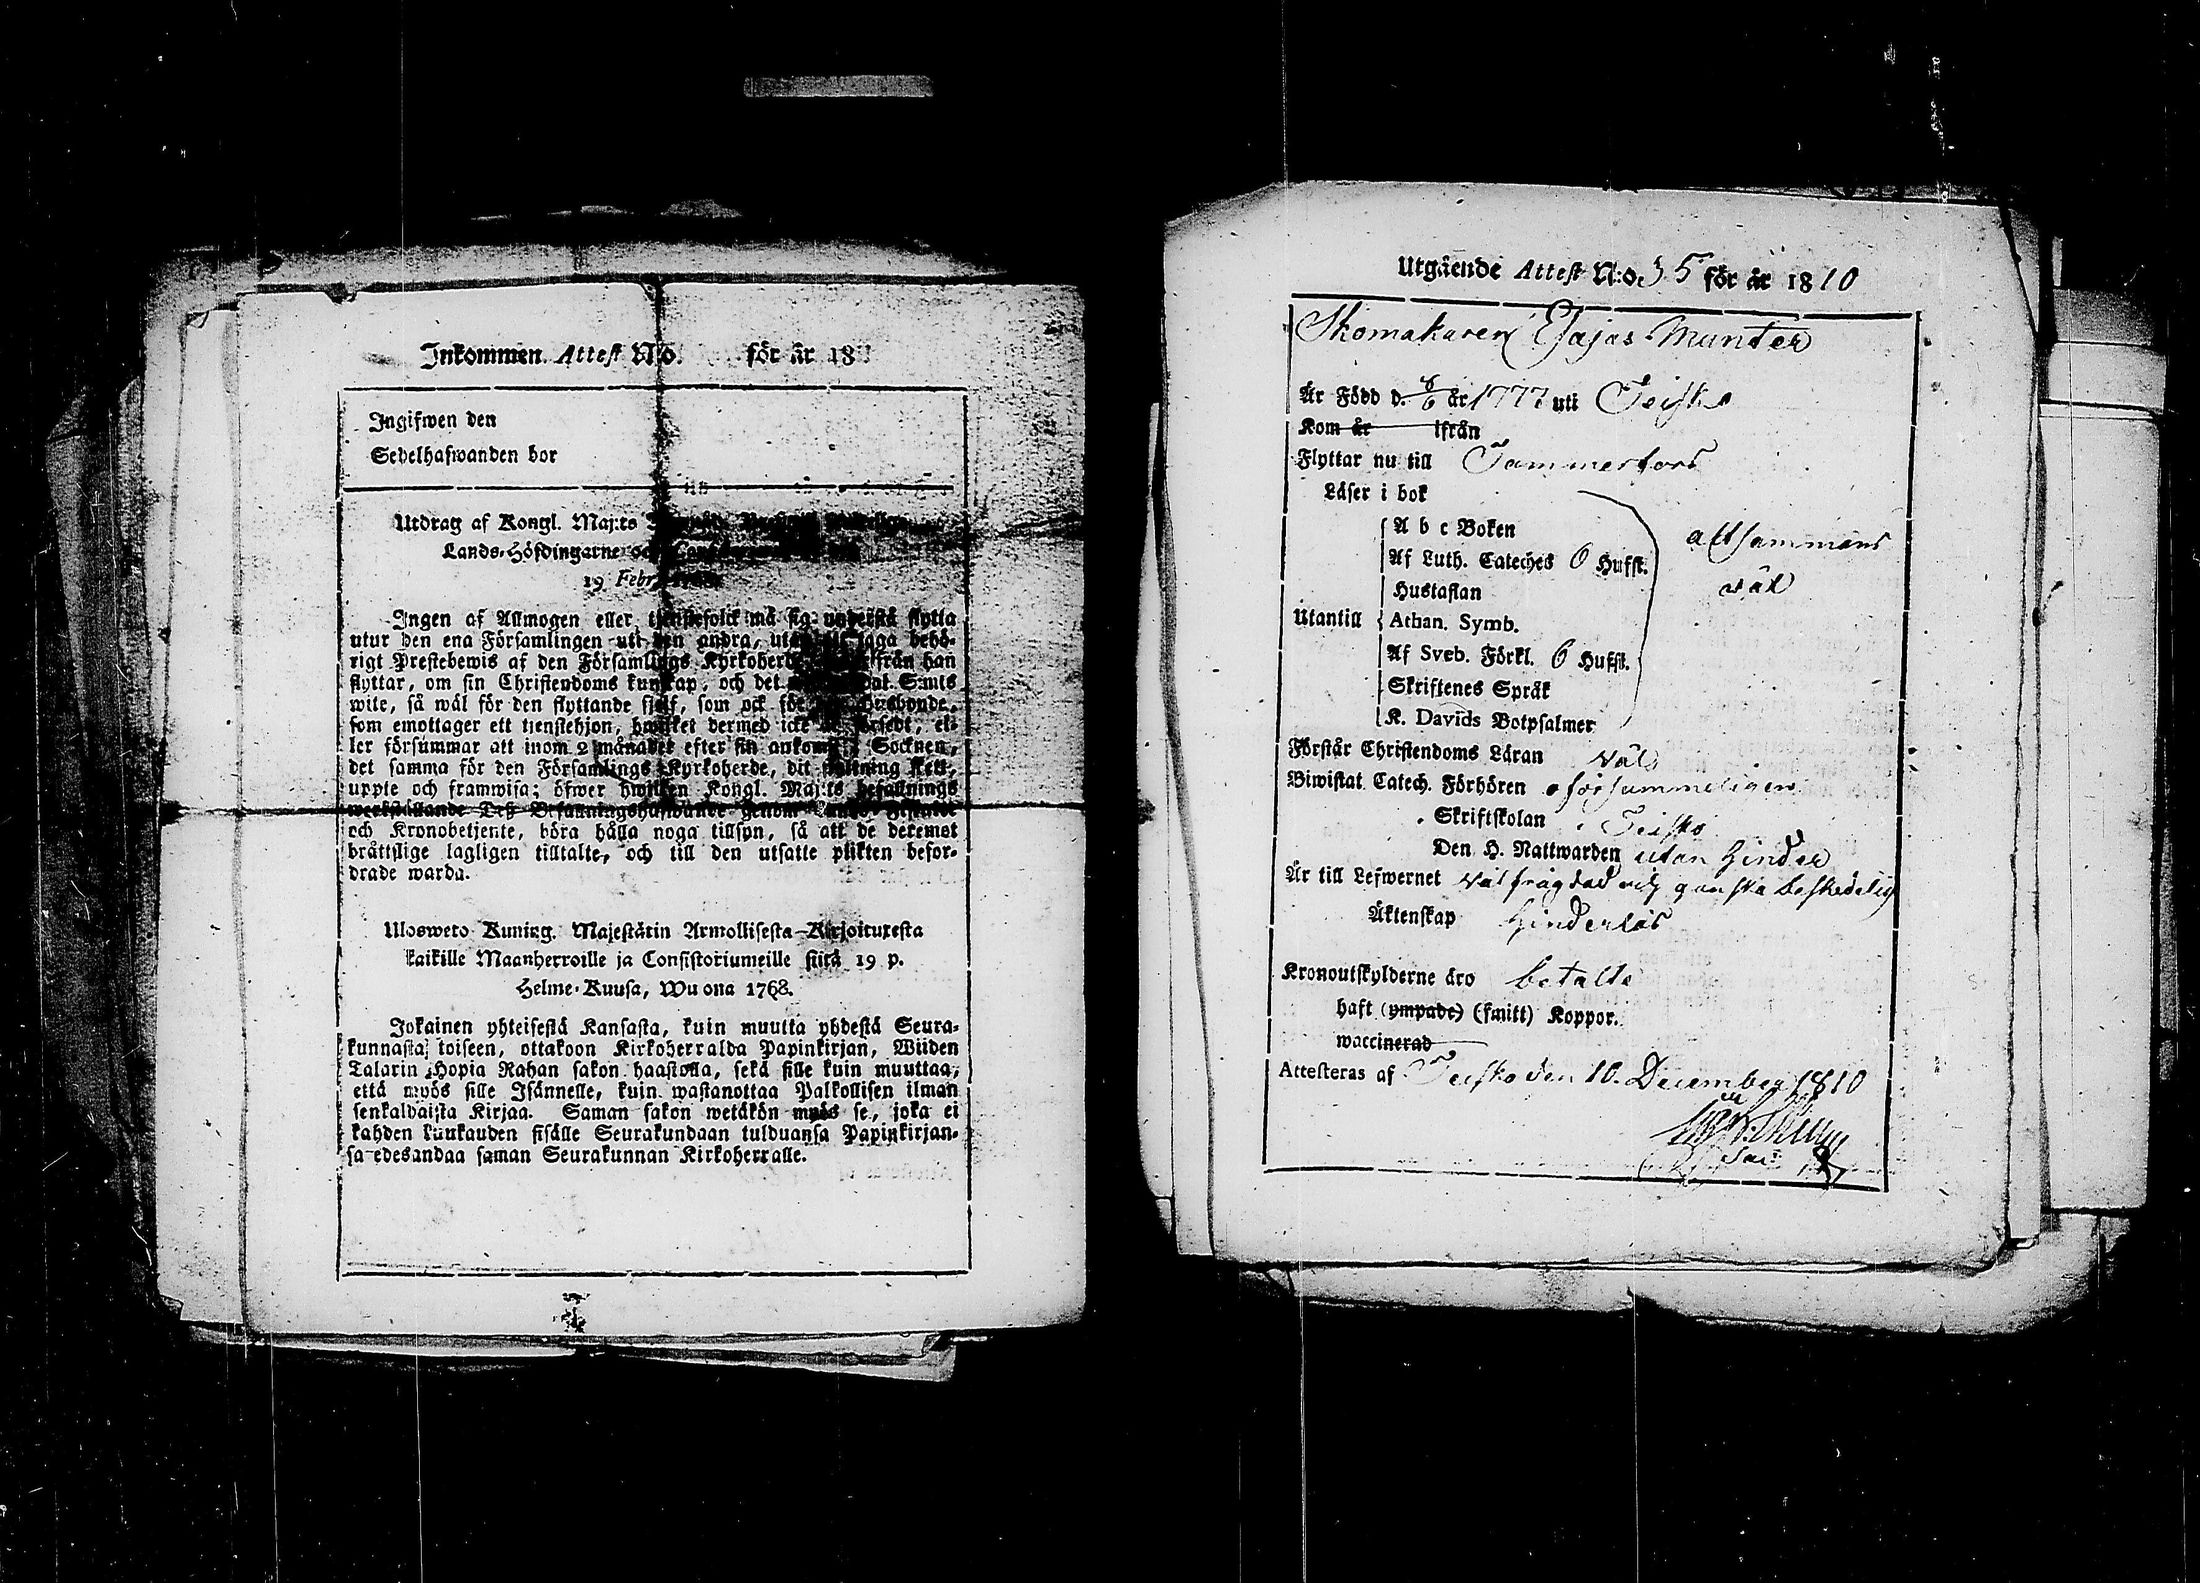 Inkommen Attest N:o. för år 18
Ingifwen den
Sedelhafwanden bor
Utdrag af Kongl. Maj:ts
Lands-Höfdingarne och
19 Febr.
Ingen af Allmogen eller tjenstefolck må sig understå flytta
utur den ena Församlingen uti den andra, utan taga behö-
rigt Prestebewis af den Församlings Kyrkoherde ifrån han
flyttar, om sin Christendoms kunskap, och det S:mts
wite, så wäl för den flyttande sjelf, som ock för Husbonde,
som emottager ett tienstehjon, hwilket dermed icke försedt, el-
ler försummar att inom 2 månader efter sin ankomst Socknen,
det samma för den Församlings Kyrkoherde, dit flyttning skett,
uppte och framwisa; öfwer hwilken Kongl. Maj:ts befallnings
werkställande Deß Befallningshafwande genom Lands Fiskale
och Kronobetjente, böra hålla noga tillsyn, så att de deremot
bråttslige lagligen tilltalte, och till den utsatte plikten befor-
drade warda.
Ulosweto Kuning. Majestätin Armollisesta Kirjoituxesta
kaikille Maanherroille ja Consistoriumeille siitä 19 p.
Helme-Kuusa, Wuona 1768.
Jokainen yhteisestä Kansasta, kuin muutta yhdestä Seura-
kunnasta toiseen, ottakoon Kirkoherralda Papinkirjan, Wiiden
Talarin Hopia Rahan sakon haastolla, sekä sille kuin muuttaa,
että myös sille Isännelle, kuin wastanottaa Palkollisen ilman
senkaldaista Kirjaa. Saman sakon wetäkön myös se, joka ei
kahden Kuukauden sisälle Seurakundaan tulduansa Papinkirjan-
sa edesandaa saman Seurakunnan Kirkoherralle.
Utgående Attest N:o. 35 för år 1810
Skomakaren Esajas Munter
Är Född d. 6/6 år 1777 uti Teisko
Kom år ifrån
Flyttar nu till Tammerfors
Läser i bok
A b c Boken
Af Luth. Cateches 6 Hufst.
Hustaflan
Utantill Athan. Symb.
Af Sveb. Förkl. 6 Hufst.
Skriftenes Språk
K. Davids Botpsalmer
altsammans
väl
Förstår Christendoms Läran väl
Biwistat Catech. Förhören oförsummeligen
Skriftskolan i Teisko
Den H. Nattwarden utan hinder
Är till Lefwernet välfrägdad och ganska beskedelig
Äktenskap hinderlös
Kronoutskylderne äro betalte
haft (ympade) (smitt) Koppor.
waccinerad
Attesteras af Teisko den 10. December 1810